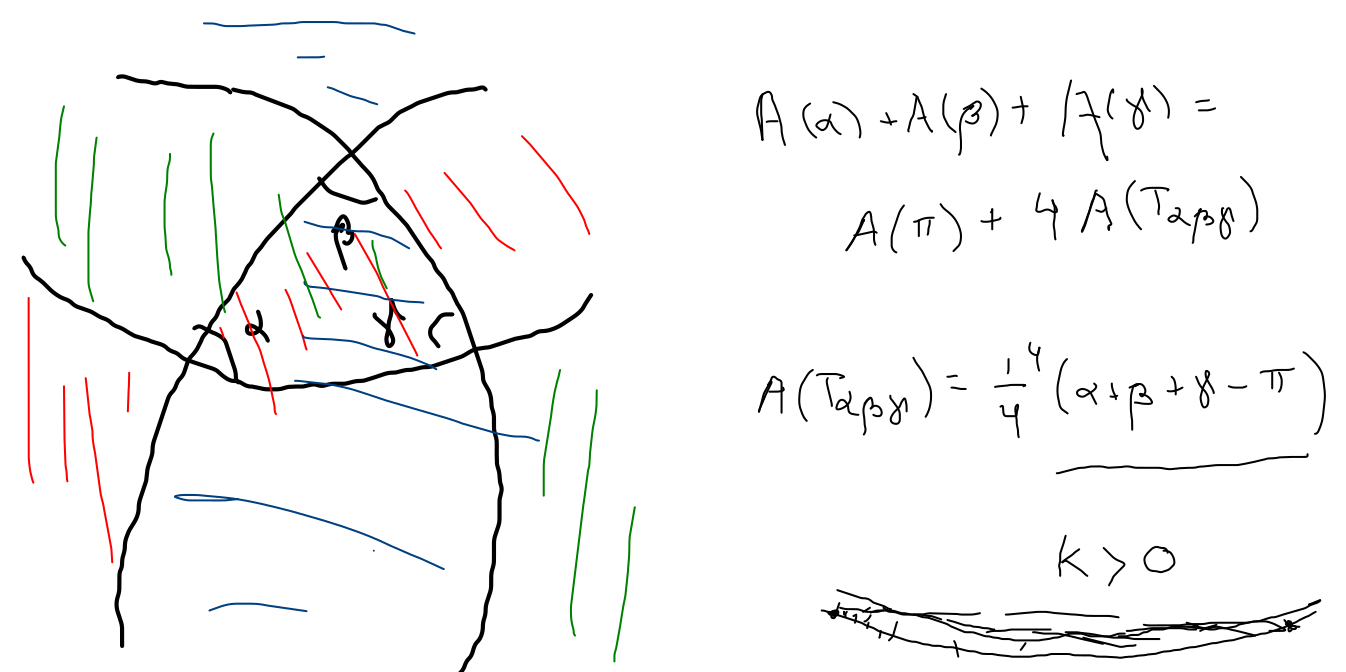 β
α γ
A(α) + A(β) + A(γ) =
A(π) + 4 A(Tαβγ)
A(Tαβγ) = 1/4 4 (α+β+γ-π)
K > 0